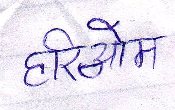 हरिओम